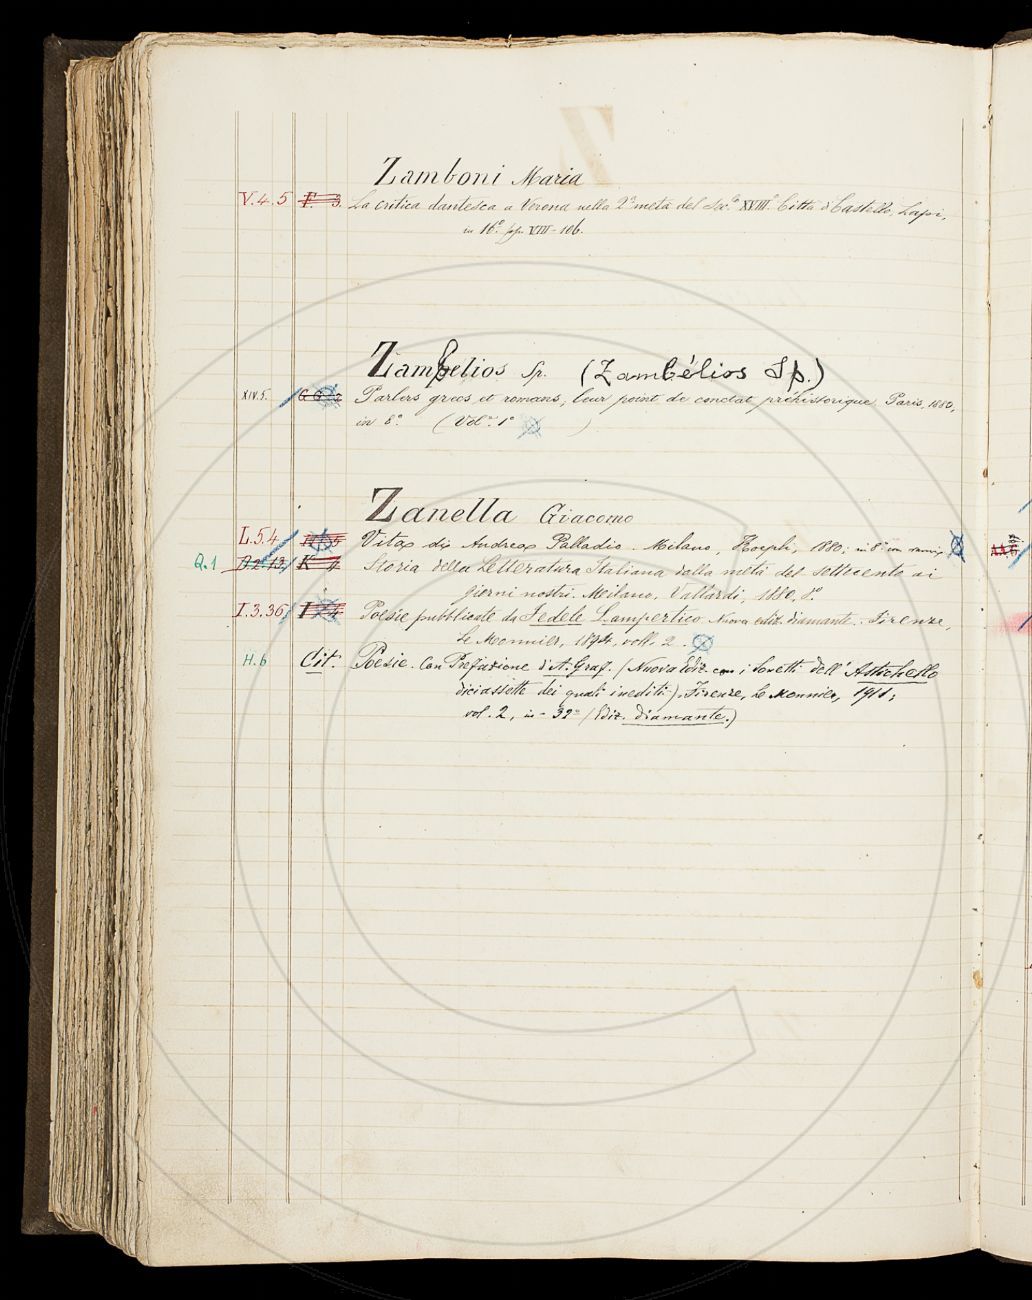 Zamboni Maria
V.4.5 F. 3. La critica dantesca a Verona nella 2ª metà del Sec.º XVIII.º Città di Castello, Lapi,
in 16º pp. VIII-106.
Zambelios Sp. (Zambélios Sp.)
XIV.5. Parlers grecs et romans, leur point de contact préhistorique. Paris, 1880,
in 8º (Vol. 1º )
Zanella Giacomo
L.5.4 Vita di Andrea Palladio. Milano, Hoepli, 1880; in 8º con
Q.1 K 4 Storia della Letteratura Italiana dalla metà del settecento ai
giorni nostri. Milano, Vallardi, 1880, 8º
I.3.36 I 4 Poesie pubblicate da Fedele Lampertico Nuova ediz. diamante. Firenze,
Le Monnier, 1894, voll. 2.
H.6 Cit. Poesie. Con Prefazione di A. Graf. (Nuova Ediz. con i Sonetti dell' Astichello
diciassette dei quali inediti). Firenze, Le Monnier, 1911;
vol. 2, in-32º (Ediz. diamante.)